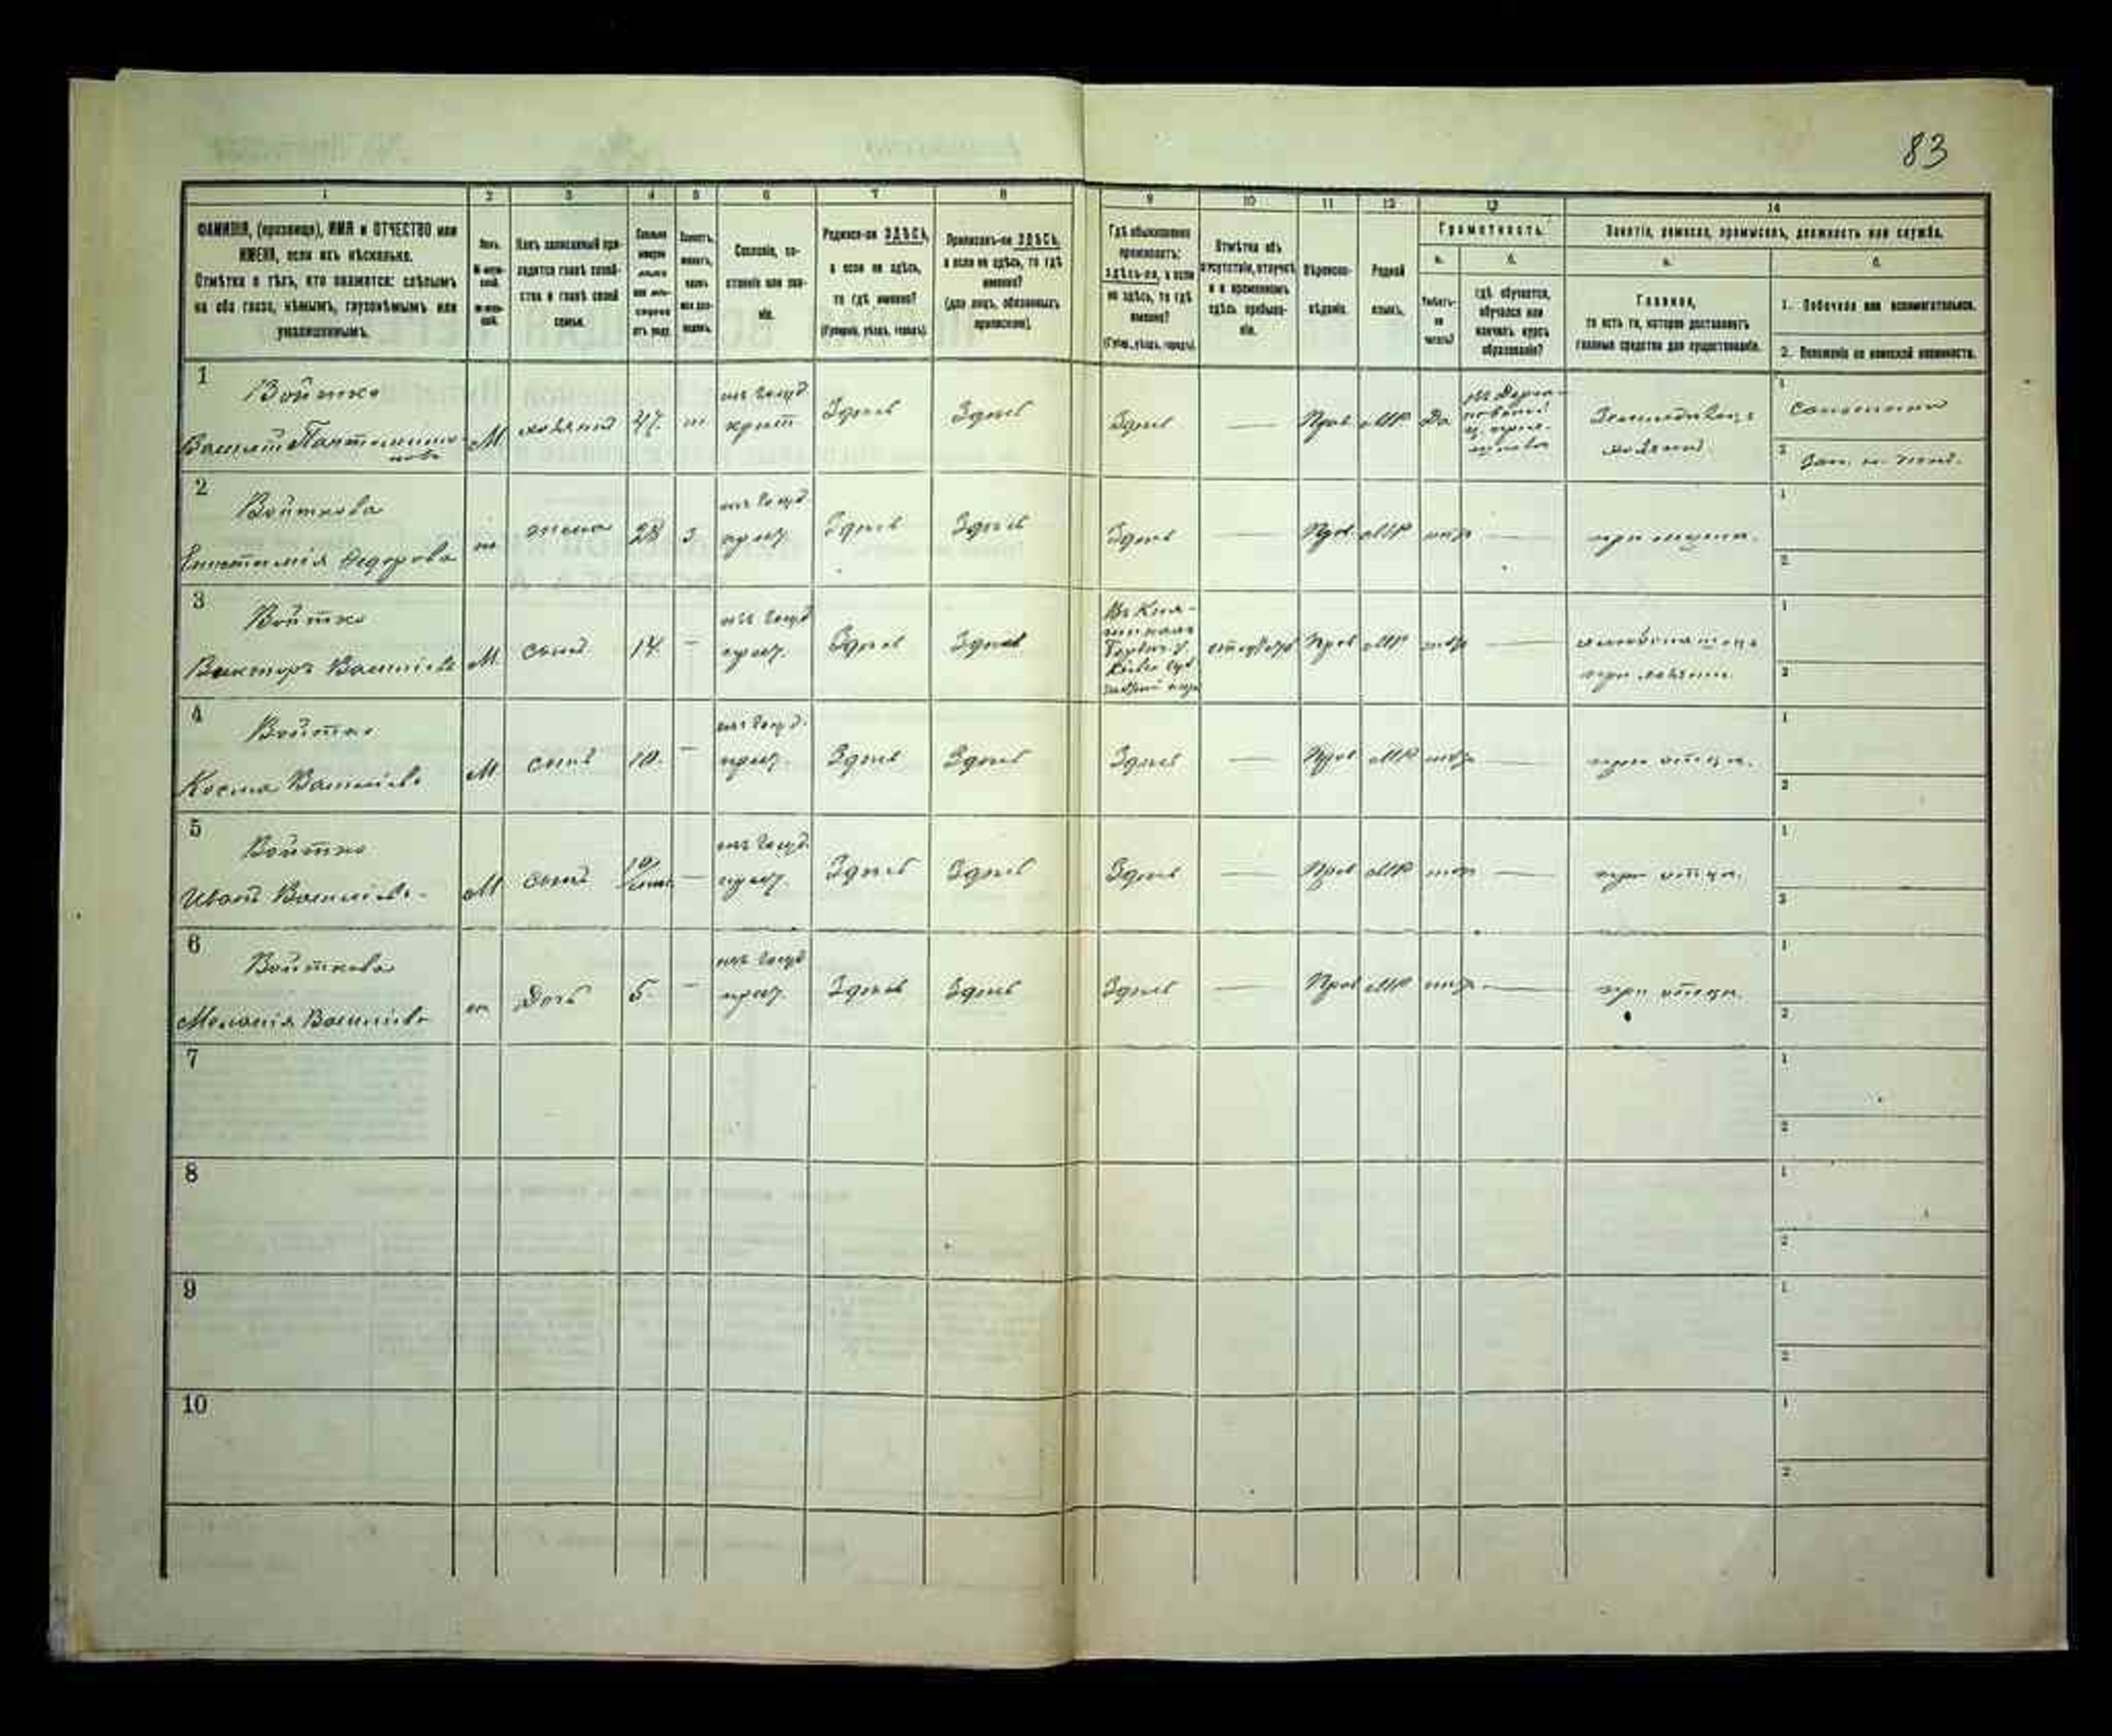 83
1 2 3 4 5 6 7 8 9 10 11 12 13 14
ФАМИЛІЯ, (прозвище), ИМЯ и ОТЧЕСТВО или
ИМЕНА, если ихъ нѣсколько.
Отмѣтка о тѣхъ, кто окажется: слѣпымъ
на оба глаза, нѣмымъ, глухонѣмымъ или
умалишеннымъ.
Полъ.
Какъ записанный при-
ходится главѣ хозяй-
ства и главѣ своей
семьи.
Сословіе, со-
стояніе или зва-
ніе.
Родился-ли ЗДѢСЬ,
а если не здѣсь,
то гдѣ именно?
(Губернія, уѣздъ, городъ).
Приписанъ-ли ЗДѢСЬ,
а если не здѣсь, то гдѣ
именно?
(для лицъ, обязанныхъ
припискою).
Гдѣ обыкновенно
проживаетъ:
здѣсь-ли, а если
не здѣсь, то гдѣ
именно?
(Губер., уѣздъ, городъ).
Отмѣтка объ
отсутствіи, отлучкѣ
и о временномъ
здѣсь пребыва-
ніи.
Вѣроиспо-
вѣданіе.
Родной
языкъ.
Грамотность.
а. б.
Умѣетъ-
ли
читать?
гдѣ обучается,
обучался или
кончилъ курсъ
образованія?
Занятіе, ремесло, промыселъ, должность или служба.
а. б.
Главное,
то есть то, которое доставляетъ
главныя средства для существованія.
1. Побочное или вспомогательное.
2. Положеніе по воинской повинности.
1
Войтко
Василій
М хозяинъ 47.
изъ госуд.
крест
Здѣсь Здѣсь Здѣсь — Прав МР Да
Земледѣлецъ
хозяинъ.
1
2
2
Войткова
Епистимія Федорова
жена 28 З.
изъ госуд.
крест.
Здѣсь Здѣсь Здѣсь — Прав МР — при мужѣ.
1
2
3
Войтко
Викторъ Васильевъ
М сынъ 14. —
изъ госуд
крест.
Здѣсь Здѣсь Прав МР —
при хозяинѣ.
1
2
4
Войтко
Косма Васильевъ
М сынъ 10. —
изъ госуд.
крест.
Здѣсь Здѣсь Здѣсь — Прав МР — при отцѣ.
1
2
5
Войтко
Иванъ Васильевъ
М сынъ —
изъ госуд.
крест.
Здѣсь Здѣсь Здѣсь — Прав МР — при отцѣ.
1
2
6
Войткова
Меланія Васильева
дочь 5. —
изъ госуд
крест.
Здѣсь Здѣсь Здѣсь — Прав МР — при отцѣ.
1
2
7
1
2
8
1
2
9
1
2
10
1
2